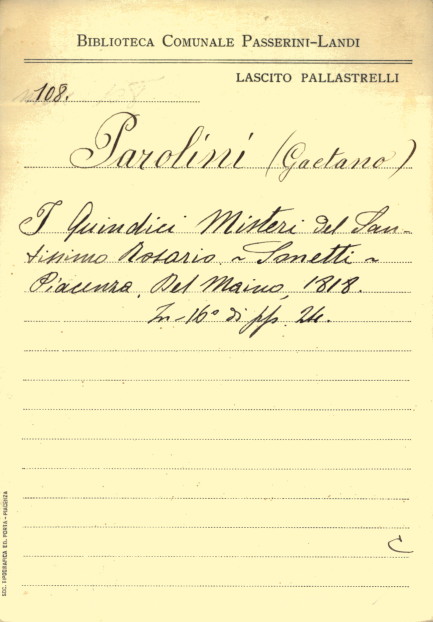 BIBLIOTECA COMUNALE PASSERINI-LANDI
LASCITO PALLASTRELLI
108.
Parolini (Gaetano)
I Quindici Misteri del San-
tissimo Rosario ~ Sonetti ~
Piacenza, Del Maino, 1818.
In-16° di pp. 24.
C
SOC. TIPOGRAFICA ED. PORTA - PIACENZA